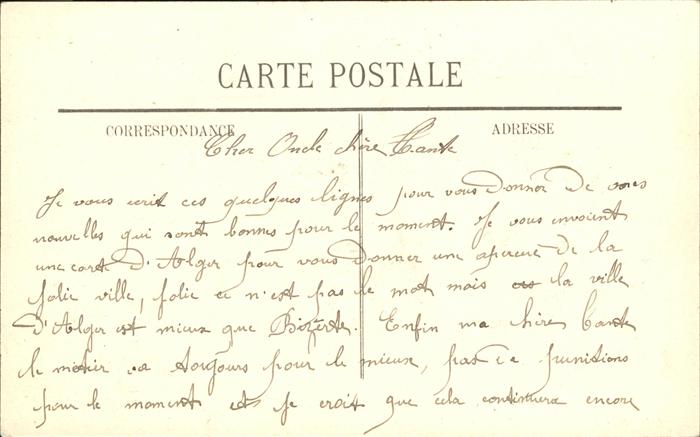 CARTE POSTALE
CORRESPONDANCE
ADRESSE
Cher Oncle chère Tante
Je vous ecrit ces quelques lignes pour vous donner de mes
nouvelles qui sont bonnes pour le moment. Je vous envoient
une carte d'Alger pour vous donner une apercue de la
jolie ville, jolie ce n'est pas le mot mais la ville
d'Alger est mieux que Bizerte. Enfin ma chère Tante
le métier va toujours pour le mieux, pas de punitions
pour le moment et je croit que cela continuera encore